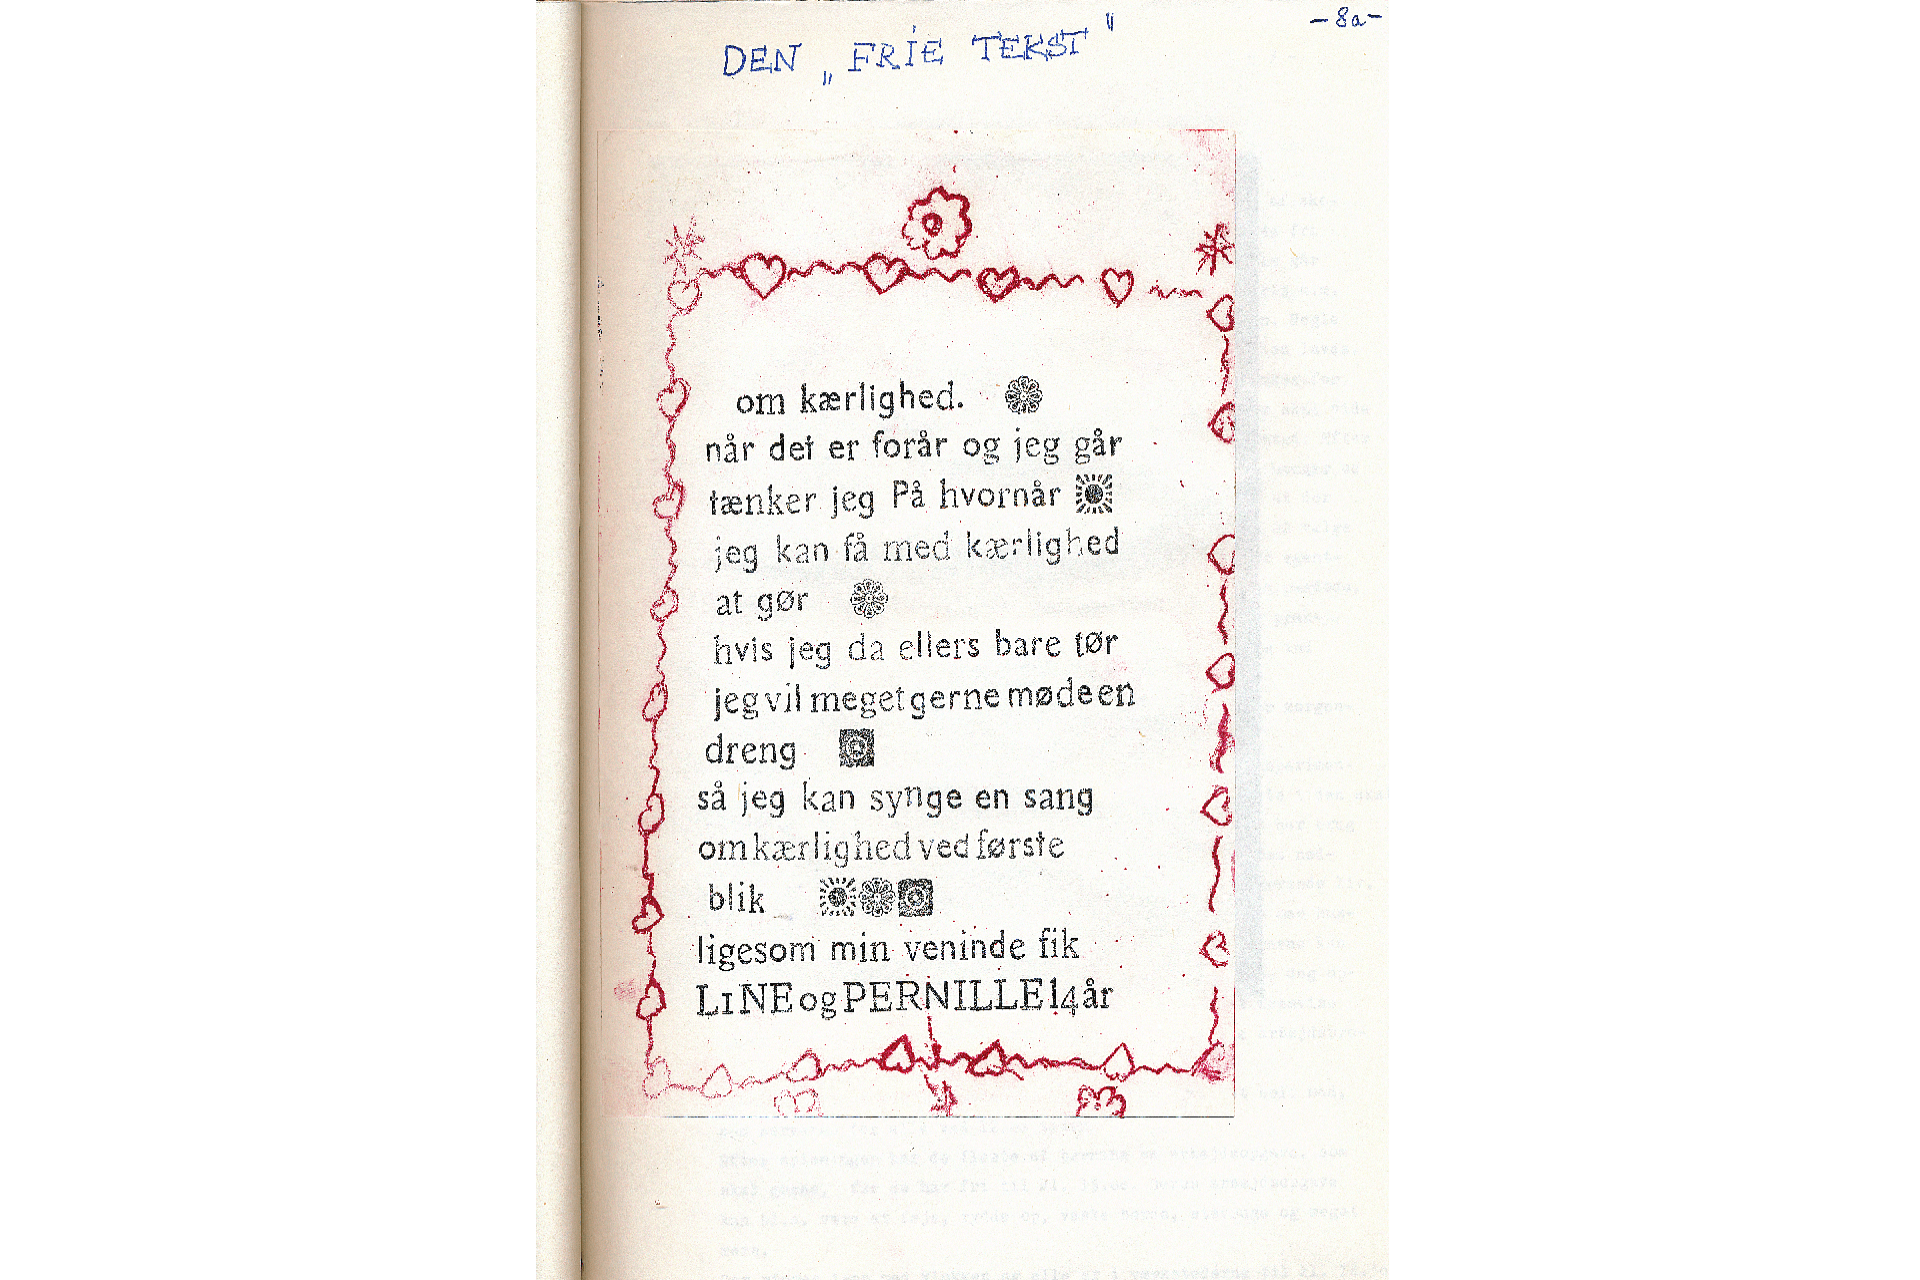 -8a-
DEN „FRIE TEKST"
om kærlighed.
når det er forår og jeg går
tænker jeg På hvornår
jeg kan få med kærlighed
at gør
hvis jeg da ellers bare tør
jeg vil meget gerne møde en
dreng
så jeg kan synge en sang
om kærlighed ved første
blik
ligesom min veninde fik
L1NE og PERNILLE 14 år